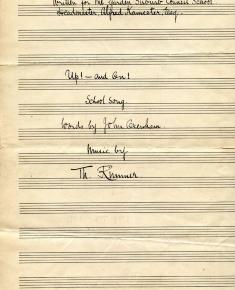 Written for the Garden Suburb Council School
Headmaster Alfred Kamester, Esq.
Up! — and On!
School Song.
Words by John Oxenham
Music by
Th.